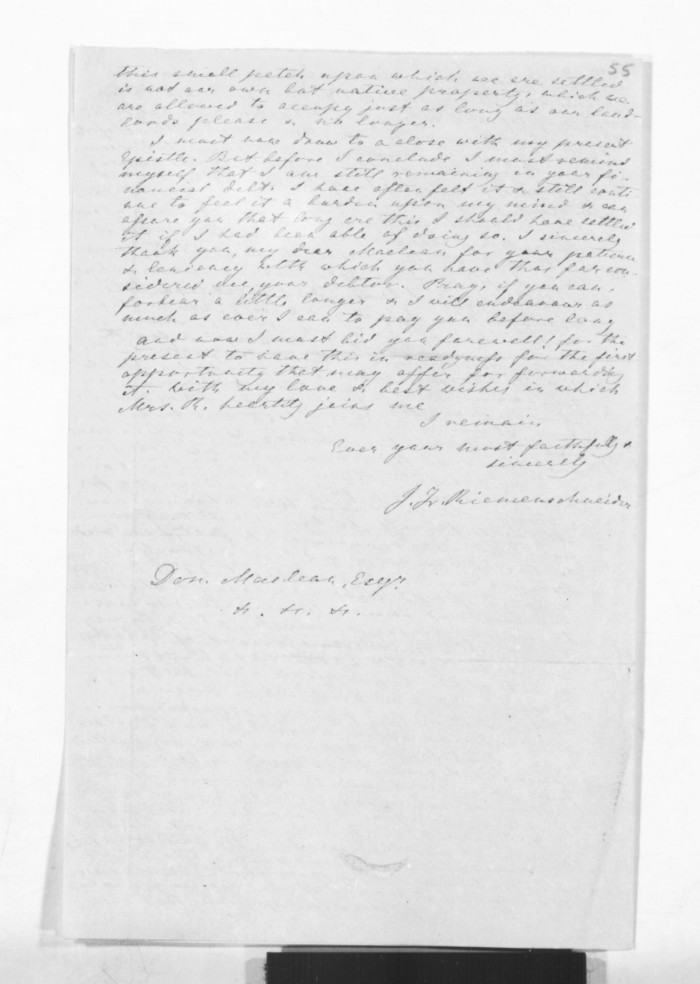 55
this small patch upon which we are settled
is not our own but native property, which we
are allowed to occupy just as long as our land-
lords please & no longer.
I must now draw to a close with my present
Epistle. But before I conclude I must remind
myself that I am still remaining in your fi-
nancial debt. I have often felt it & still conti
nue to feel it a burden upon my mind & can
assure you that long ere this I should have settled
it if I had been able of doing so. I sincerely
thank you, my dear Maclean for your patience
& leniency with which you have thus far con-
sidered me, your debtor. Pray, if you can,
forbear a little longer & I will endeavour as
much as ever I can to pay you before long
And now I must bid you farewell! for the
present to have this in readyness for the first
opportunity that may offer for forwarding
it. With my love & best wishes in which
Mrs. R. heartily joins me
I remain
Ever your most faithfully &
sincerely
J. Fr. Riemenschneider
Don. Maclean, Esqr.
&. &. &.